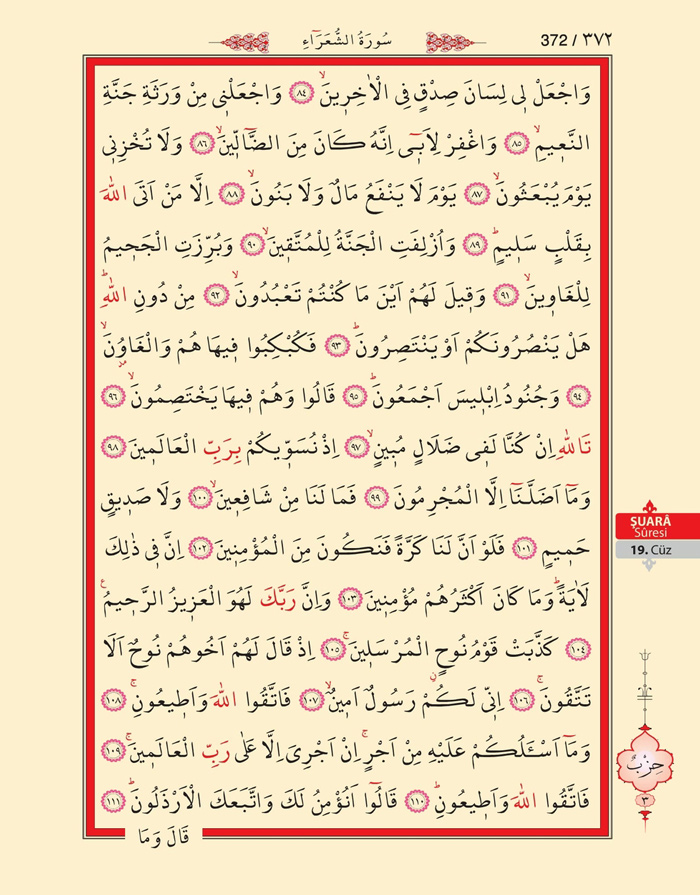 372 / ٣٧٢ سُورَةُ الشُّعَرَٓاءِ
وَاجْعَلْ ل۪ي لِسَانَ صِدْقٍ فِي الْاٰخِر۪ينَۙ ﴿٨٤﴾ وَاجْعَلْن۪ي مِنْ وَرَثَةِ جَنَّةِ
النَّع۪يمِۙ ﴿٨٥﴾ وَاغْفِرْ لِاَب۪ٓي اِنَّهُ كَانَ مِنَ الضَّٓالّ۪ينَۙ ﴿٨٦﴾ وَلَا تُخْزِن۪ي
يَوْمَ يُبْعَثُونَۙ ﴿٨٧﴾ يَوْمَ لَا يَنْفَعُ مَالٌ وَلَا بَنُونَۙ ﴿٨٨﴾ اِلَّا مَنْ اَتَى اللّٰهَ
بِقَلْبٍ سَل۪يمٍۜ ﴿٨٩﴾ وَاُزْلِفَتِ الْجَنَّةُ لِلْمُتَّق۪ينَۙ ﴿٩٠﴾ وَبُرِّزَتِ الْجَح۪يمُ
لِلْغَاو۪ينَۙ ﴿٩١﴾ وَق۪يلَ لَهُمْ اَيْنَ مَا كُنْتُمْ تَعْبُدُونَۙ ﴿٩٢﴾ مِنْ دُونِ اللّٰهِۜ
هَلْ يَنْصُرُونَكُمْ اَوْ يَنْتَصِرُونَۜ ﴿٩٣﴾ فَكُبْكِبُوا ف۪يهَا هُمْ وَالْغَاوُ۫نَۙ
﴿٩٤﴾ وَجُنُودُ اِبْل۪يسَ اَجْمَعُونَۜ ﴿٩٥﴾ قَالُوا وَهُمْ ف۪يهَا يَخْتَصِمُونَۙ ﴿٩٦﴾
تَاللّٰهِ اِنْ كُنَّا لَف۪ي ضَلَالٍ مُب۪ينٍۙ ﴿٩٧﴾ اِذْ نُسَوّ۪يكُمْ بِرَبِّ الْعَالَم۪ينَ ﴿٩٨﴾
وَمَٓا اَضَلَّنَٓا اِلَّا الْمُجْرِمُونَ ﴿٩٩﴾ فَمَا لَنَا مِنْ شَافِع۪ينَۙ ﴿١٠٠﴾ وَلَا صَد۪يقٍ
حَم۪يمٍ ﴿١٠١﴾ فَلَوْ اَنَّ لَنَا كَرَّةً فَنَكُونَ مِنَ الْمُؤْمِن۪ينَ ﴿١٠٢﴾ اِنَّ ف۪ي ذٰلِكَ
لَاٰيَةًۜ وَمَا كَانَ اَكْثَرُهُمْ مُؤْمِن۪ينَ ﴿١٠٣﴾ وَاِنَّ رَبَّكَ لَهُوَ الْعَز۪يزُ الرَّح۪يمُ۟
﴿١٠٤﴾ كَذَّبَتْ قَوْمُ نُوحٍ الْمُرْسَل۪ينَۚ ﴿١٠٥﴾ اِذْ قَالَ لَهُمْ اَخُوهُمْ نُوحٌ اَلَا
تَتَّقُونَۚ ﴿١٠٦﴾ اِنّ۪ي لَكُمْ رَسُولٌ اَم۪ينٌۙ ﴿١٠٧﴾ فَاتَّقُوا اللّٰهَ وَاَط۪يعُونِۚ ﴿١٠٨﴾
وَمَٓا اَسْـَٔلُكُمْ عَلَيْهِ مِنْ اَجْرٍۚ اِنْ اَجْرِيَ اِلَّا عَلٰى رَبِّ الْعَالَم۪ينَۚ ﴿١٠٩﴾
فَاتَّقُوا اللّٰهَ وَاَط۪يعُونِۜ ﴿١١٠﴾ قَالُٓوا اَنُؤْمِنُ لَكَ وَاتَّبَعَكَ الْاَرْذَلُونَۜ ﴿١١١﴾
قَالَ وَمَا
ŞUARÂ
Sûresi
19. Cüz
حِزْبٌ
٣